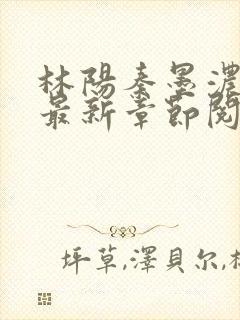 林陽秦墨濃
最新章節閱
坪草,澤貝尔,